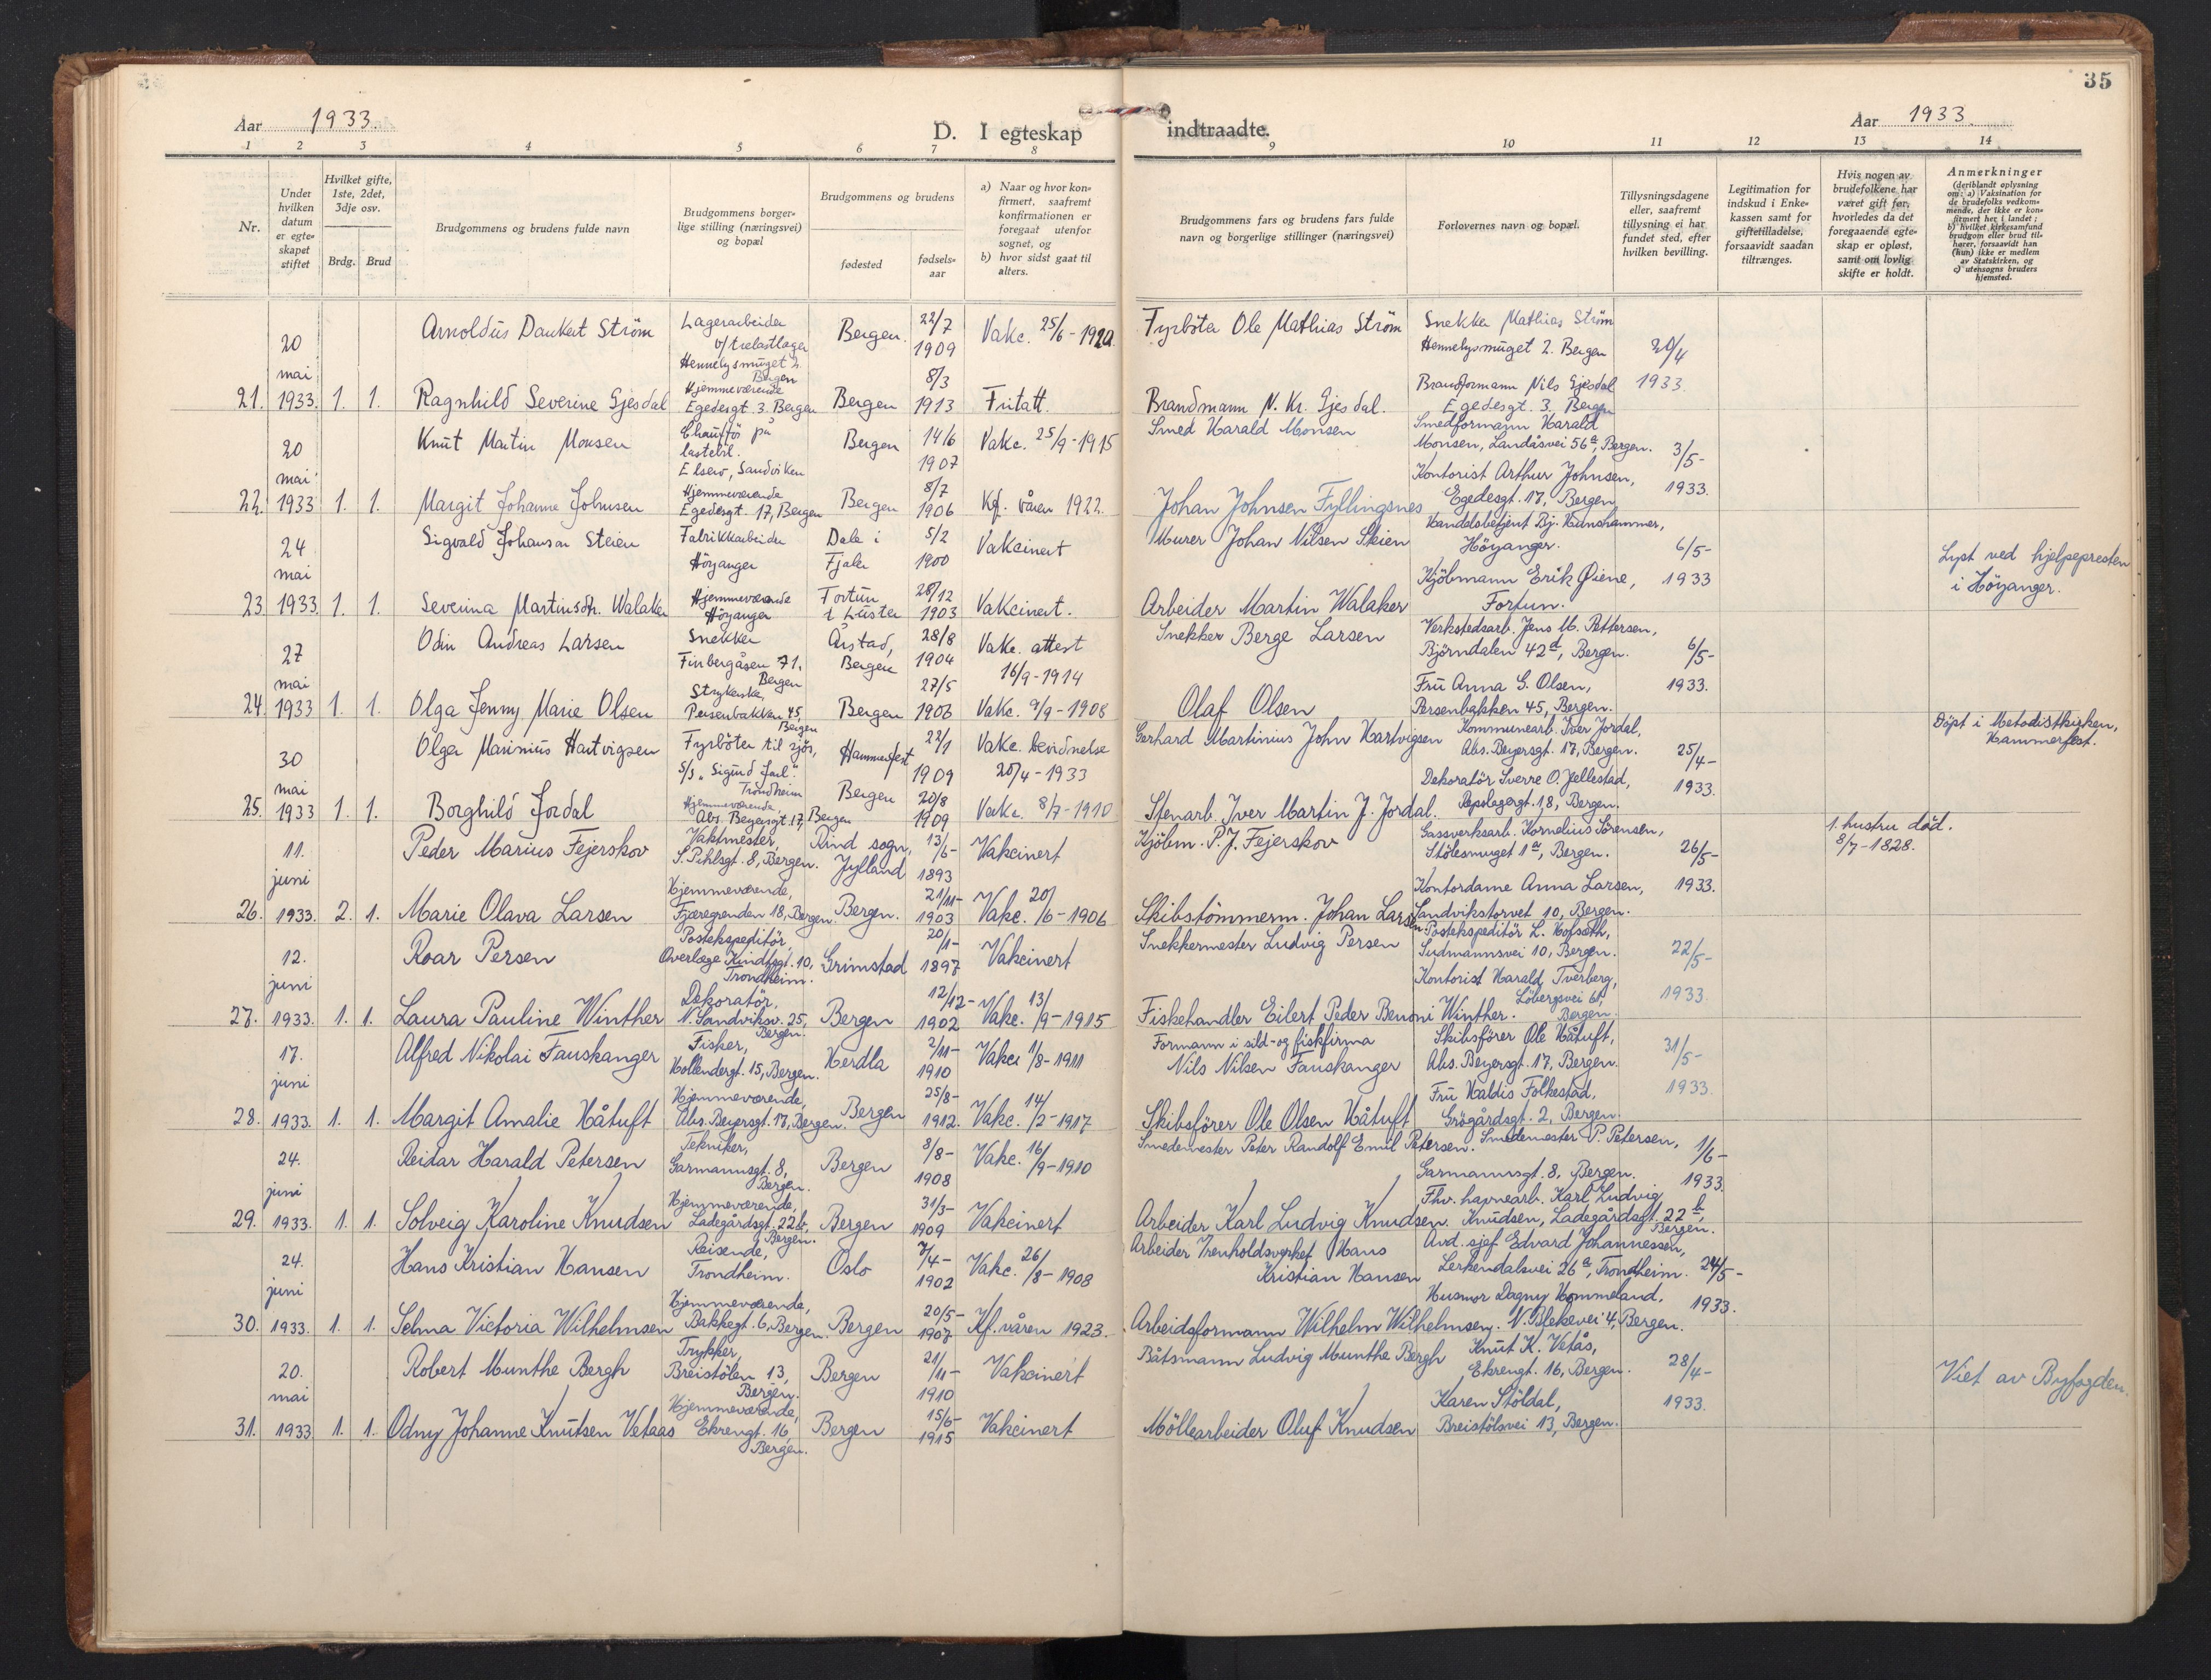 35
Aar 1933.
D. I egteskap indtraadte.
Aar 1933.
1 2 3 4 5 6 7 8 9 10 11 12 13 14
Nr.
Under hvilken datum er egteskapet stiftet
Hvilket gifte, 1ste, 2det, 3dje osv.
Brdg. Brud
Brudgommens og brudens fulde navn
Brudgommens borgerlige stilling (næringsvei) og bopæl
Brudgommens og brudens
fødested
fødselsaar
a) Naar og hvor konfirmert, saafremt konfirmationen er foregaat utenfor sognet, og
b) hvor sidst gaat til alters.
Brudgommens fars og brudens fars fulde navn og borgerlige stillinger (næringsvei)
Forlovernes navn og bopæl.
Tillysningsdagene eller, saafremt tillysning ei har fundet sted, efter hvilken bevilling.
Legitimation for indskud i Enkekassen samt for giftetilladelse, forsaavidt saadan tiltrænges.
Hvis nogen av brudefolkene har været gift før, hvorledes da det foregaaende egteskap er opløst, samt om lovlig skifte er holdt.
Anmerkninger
(deriblandt oplysning om: a) Vaksination for de brudefolks vedkommende, der ikke er konfirmert her i landet; b) hvilket kirkesamfund brudgom eller brud tilhører, forsaavidt han (hun) ikke er medlem av Statskirken, og c) utensogns bruders hjemsted.
21. 20 mai 1933. 1. 1.
Arnoldus Dankert Ström
Lagerarbeider v/trelastlager
Hennelysmuget 2. Bergen
Bergen. 22/7 1909
Vakc. 25/6-1920.
Fyrböter Ole Mathias Ström
Snekker Mathias Ström
Hennelysmuget 2. Bergen
20/4 1933.
Ragnhild Severine Gjesdal
Hjemmeværende
Egedesgt. 3. Bergen
Bergen 8/3 1913
Fritatt.
Brandmann N. Kr. Gjesdal.
Brandformann Nils Gjesdal
Egedesgt. 3. Bergen
22. 20 mai 1933 1. 1.
Knut Martin Monsen
Chaufför på lastebil.
Elsero, Sandviken
Bergen 14/6 1907
Vakc. 25/9-1915
Smed Harald Monsen
Smedformann Harald
Monsen, Landåsvei 56a, Bergen.
3/5- 1933.
Margit Johanne Johnsen
Hjemmeværende
Egedesgt. 17, Bergen
Bergen 8/7 1906
Kf. våren 1922.
Johan Johnsen Fyllingsnes
Kontorist Arthur Johnsen,
Egedesgt. 17, Bergen
23. 24 mai 1933. 1. 1.
Sigvald Johansen Steien
Fabrikkarbeider
Höyanger
Dale i Fjaler 5/2 1900
Vakcinert
Murer Johan Nilsen Skien
Handelsbetjent Bj. Hunshammer,
Höyanger.
6/5- 1933
Lyst ved hjelpepresten
i Höyanger.
Severina Martinsdtr. Walaker
Hjemmeværende
Höyanger
Fortun i Luster 28/12 1903
Vakcinert.
Arbeider Martin Walaker
Kjöbmann Erik Øiene,
Fortun.
24. 27 mai 1933 1. 1.
Odin Andreas Larsen
Snekker
Finbergåsen 71. Bergen
Årstad, Bergen 28/8 1904
Vakc. attest
16/9-1914
Snekker Berge Larsen
Verkstedsarb. Jens M. Pettersen,
Björndalen 42a, Bergen.
6/5- 1933.
Olga Jenny Marie Olsen
Strykerske,
Persenbakken 45, Bergen
Bergen 27/5 1906
Vakc. 9/9-1908
Olaf Olsen
Fru Anna G. Olsen,
Persenbakken 45, Bergen.
25. 30 mai 1933 1. 1.
Olger Marinius Hartvigsen
Fyrböter til sjös,
S/S. "Sigurd Jarl". Trondheim
Hammerfest 22/1 1909
Vakc. bevidnelse
25/4-1933
Gerhard Martinius John Hartvigsen
Kommunearb. Iver Jordal,
Abs. Beyersgt. 17, Bergen.
25/4- 1933.
Döpt i Metodistkirken,
Hammerfest.
Borghild Jordal
Hjemmeværende,
Abs. Beyersgt. 17, Bergen
Bergen 20/8 1909
Vakc. 8/7-1910
Stenarb. Iver Martin J. Jordal.
Dekoratör Sverre O. Jellestad,
Repslagergt. 18, Bergen.
26. 11. juni 1933. 2. 1.
Peder Marius Fejerskov
Vaktmester,
S. Pihlsgt. 8, Bergen.
Rind sogn, Jylland 13/6- 1893
Vakcinert
Kjöbm. P.J. Fejerskov
Gassverksarb. Kornelius Sörensen,
Stölesmuget 1a, Bergen.
26/5- 1933.
1. hustru död.
8/7-1828.
Marie Olava Larsen
Hjemmeværende,
Fjæregrenden 18, Bergen.
Bergen. 21/11- 1903
Vakc. 20/6-1906
Skibstömmerm. Johan Larsen.
Kontordame Anna Larsen,
Sandvikstorvet 10, Bergen.
27. 12. juni 1933. 1. 1.
Roar Persen
Postekspeditör,
Overlæge Kindtsgt. 10, Trondheim.
Grimstad 20/1- 1897
Vakcinert
Snekkermester Ludvig Persen
Postekspeditör L. Hofseth,
Sudmannsvei 10, Bergen.
22/5- 1933.
Laura Pauline Winther
Dekoratör,
N. Sandviksv. 25, Bergen.
Bergen 12/12- 1902
Vakc. 13/9-1915
Fiskehandler Eilert Peder Benoni Winther.
Kontorist Harald Tverberg,
Löbergsvei 61, Bergen.
28. 17. juni 1933. 1. 1.
Alfred Nikolai Fauskanger
Fisker,
Hollendergt. 15, Bergen.
Herdla 2/11- 1910
Vakci 1/8-1911
Formann i sild- og fiskfirma
Nils Nilsen Fauskanger
Skibsförer Ole Håtuft,
Abs. Beyersgt. 17, Bergen.
31/5- 1933.
Margit Amalie Håtuft
Hjemmeværende,
Abs. Beyersgt. 17, Bergen.
Bergen 25/8- 1912.
Vakc. 14/2-1917
Skibsförer Ole Olsen Håtuft
Fru Haldis Folkestad,
Grögårdsgt. 2, Bergen.
29. 24. juni 1933. 1. 1.
Reidar Harald Petersen
Tekniker,
Garmannsgt. 8, Bergen.
Bergen 8/8- 1908
Vakc. 16/9-1910
Smedemester Peter Randolf Emil Petersen.
Smedemester P. Petersen,
Garmannsgt. 8, Bergen.
1/6- 1933.
Solveig Karoline Knudsen
Hjemmeværende,
Ladegårdsgt. 22b, Bergen.
Bergen 31/3- 1909
Vakcinert
Arbeider Karl Ludvig Knudsen.
Fhv. havnearb. Karl Ludvig
Knudsen, Ladegårdsgt. 22b, Bergen.
30. 24. juni 1933. 1. 1.
Hans Kristian Hansen
Reisende,
Trondheim.
Oslo 7/4- 1902
Vakc. 26/8-1908
Arbeider Renholdsverket Hans
Kristian Hansen
Avd. sjef Edvard Johannessen,
Lerkendalsvei 26a, Trondheim.
24/5- 1933.
Selma Victoria Wilhelmsen
Hjemmeværende,
Bakkegt. 6, Bergen.
Bergen 20/5- 1907
Kf. våren 1923.
Arbeidsformann Wilhelm Wilhelmsen.
Husmor Dagny Hommeland,
N. Blekevei 4, Bergen.
31. 20. mai 1933 1. 1.
Robert Munthe Bergh
Trykker,
Breistölen 13, Bergen.
Bergen 21/11- 1910
Vakcinert
Båtsmann Ludvig Munthe Bergh
Knut K. Vetås,
Ekrengt. 16, Bergen.
28/4- 1933.
Viet av Byfogden.
Odny Johanne Knutsen Vetaas
Hjemmeværende,
Ekrengt. 16, Bergen.
Bergen 15/6- 1915
Vakcinert
Möllearbeider Oluf Knudsen
Karen Stöldal,
Breistölsvei 13, Bergen.